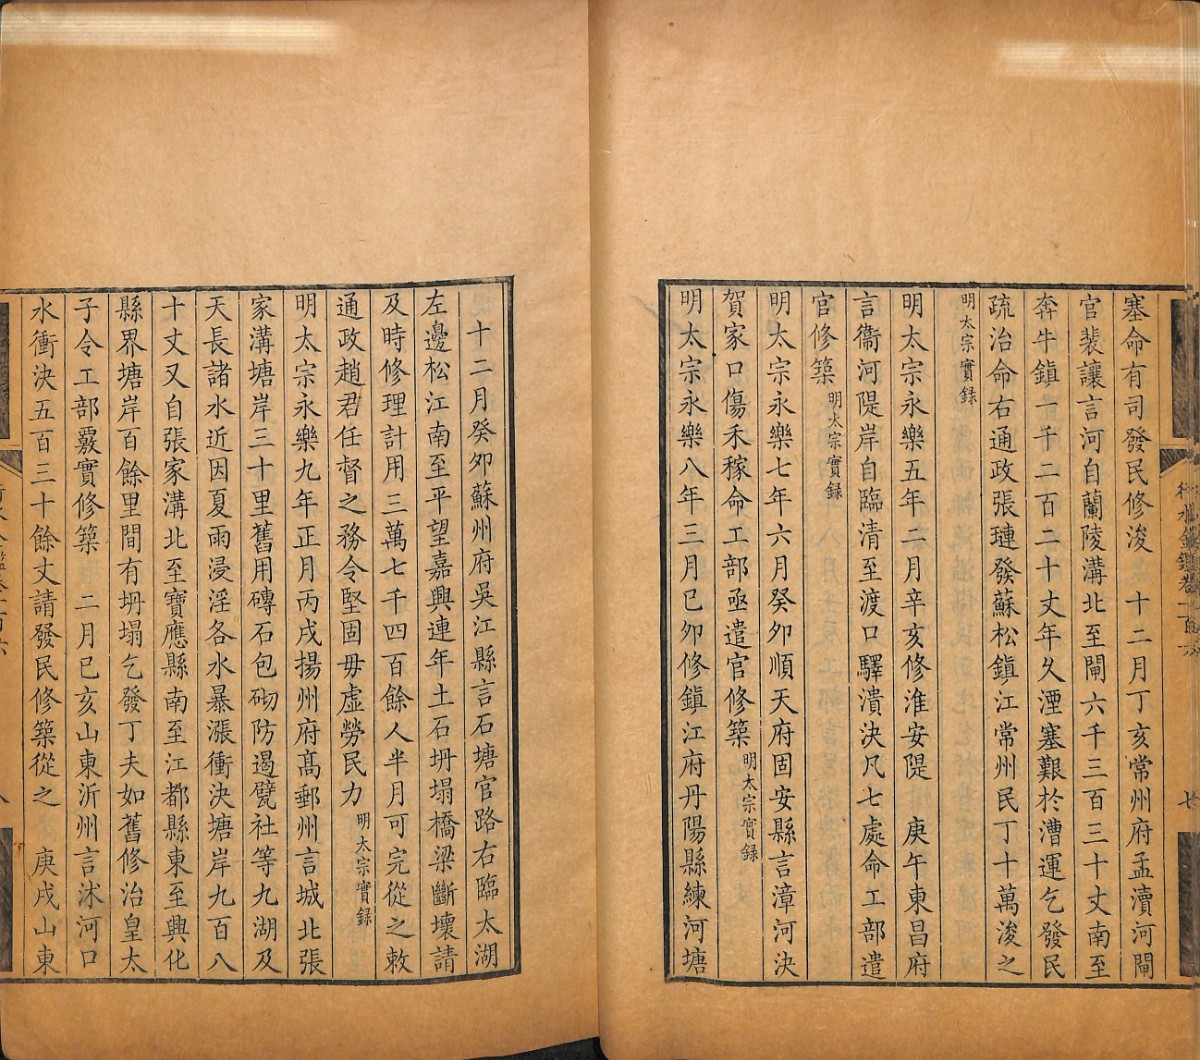 塞命有司發民修浚　十二月丁亥常州府孟瀆河閘
官裴讓言河自蘭陵溝北至閘六千三百三十丈南至
奔牛鎮一千二百二十丈年久湮塞艱於漕運乞發民
疏治命右通政張璉發蘇松鎮江常州民丁十萬浚之
明太宗實錄
明太宗永樂五年二月辛亥修淮安隄　庚午東昌府
言衞河隄岸自臨清至渡口驛潰決凡七處命工部遣
官修築明太宗實錄
明太宗永樂七年六月癸卯順天府固安縣言漳河決
賀家口傷禾稼命工部亟遣官修築明太宗實錄
明太宗永樂八年三月巳卯修鎮江府丹陽縣練河塘
十二月癸卯蘇州府吳江縣言石塘官路右臨太湖
左邊松江南至平望嘉興連年土石坍塌橋梁斷壞請
及時修理計用三萬七千四百餘人半月可完從之敕
通政趙君任督之務令堅固毋虛勞民力明太宗實錄
明太宗永樂九年正月丙戌揚州府髙郵州言城北張
家溝塘岸三十里舊用磚石包砌防遏甓社等九湖及
天長諸水近因夏雨浸淫各水暴漲衝決塘岸九百八
十丈又自張家溝北至寶應縣南至江都縣東至興化
縣界塘岸百餘里間有坍塌乞發丁夫如舊修治皇太
子令工部覈實修築　二月巳亥山東沂州言沭河口
水衝決五百三十餘丈請發民修築從之　庚戌山東